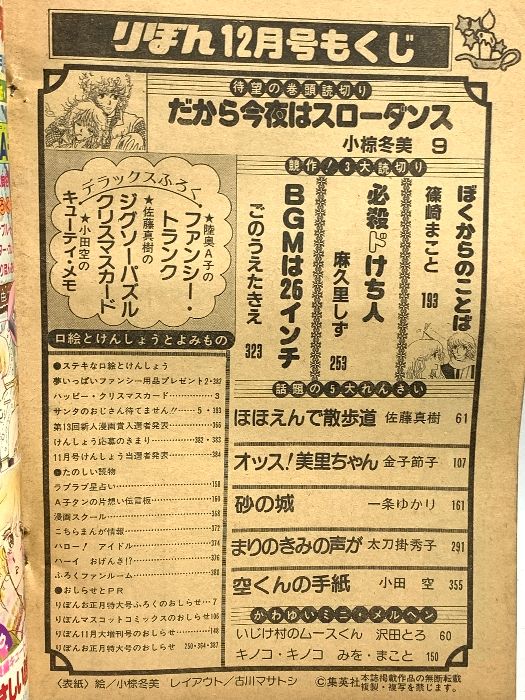 りぼん12月号もくじ
待望の巻頭読切り
だから今夜はスローダンス
小椋冬美 9
競作!3大読切り
ぼくからのことば
篠崎まこと 193
必殺ドけち人
麻久里しず 253
BGMは26インチ
ごのうえたきえ 323
デラックスふろく
★陸奥A子の
ファンシー・トランク
★佐藤真樹の
ジグソーパズル
クリスマスカード
★小田空の
キューティ・メモ
口絵とけんしょうとよみもの
●ステキな口絵とけんしょう
夢いっぱいファンシー用品プレゼント2・382
ハッピー・クリスマスカード……3
サンタのおじさん待てません!!……5・383
第13回新人漫画賞入選者発表……366
けんしょう応募のきまり……382・383
11月号けんしょう当選者発表……384
●たのしい読物
ラブラブ星占い……158
A子タンの片想い伝言板……160
漫画スクール……368
こちらまんが情報……372
ハロー!アイドル……374
ハーイ おげんき!?……376
ふろくファンルーム……380
●おしらせとPR
りぼんお正月特大号ふろくのおしらせ…7
りぼんマスコットコミックスのおしらせ106
りぼん11月大増刊号のおしらせ……148
りぼんお正月特大号のおしらせ 250・364・387
話題の5大れんさい
ほほえんで散歩道 佐藤真樹 61
オッス!美里ちゃん 金子節子 107
砂の城 一条ゆかり 161
まりのきみの声が 太刀掛秀子 291
空くんの手紙 小田 空 355
かわゆいミニ・メルヘン
いじけ村のムースくん 沢田とろ 60
キノコ・キノコ みを・まこと 150
〈表紙〉絵/小椋冬美 レイアウト/古川マサトシ
©集英社
本誌掲載作品の無断転載・複製・写真を禁じます。